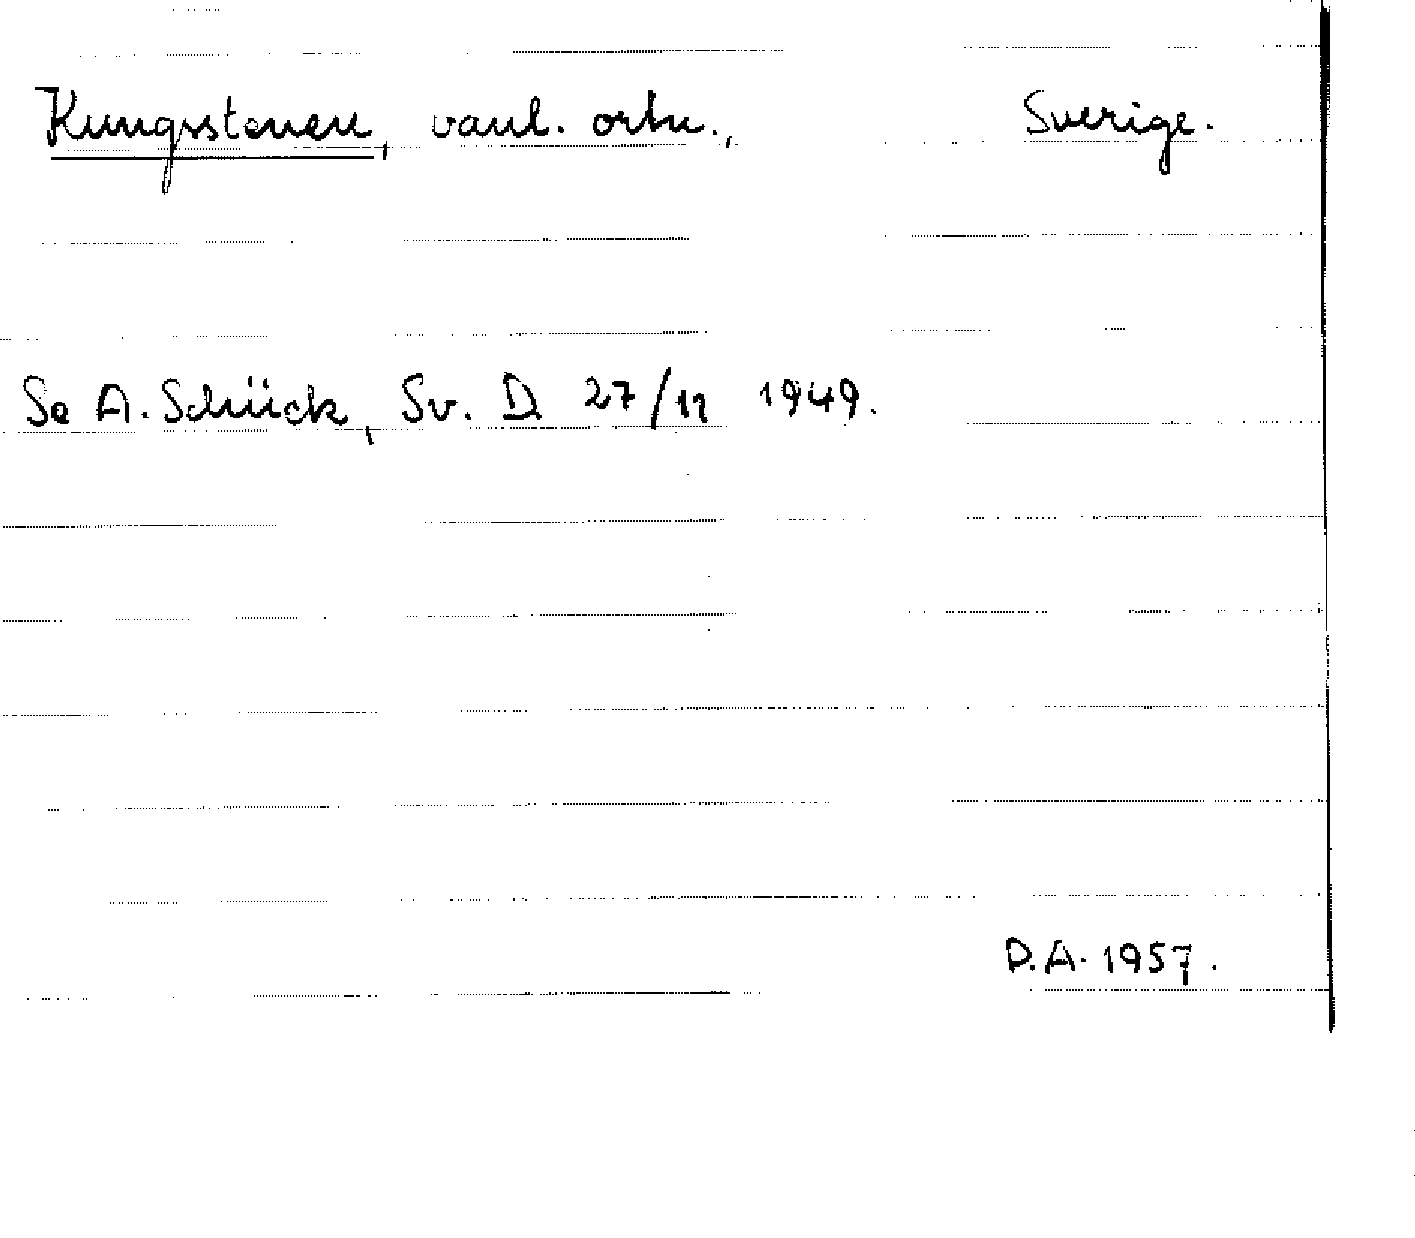 Kungsstenen, vanl. ortn., Sverige.
Se A. Schück, Sv. D. 27/11 1949.
D.A. 1957.